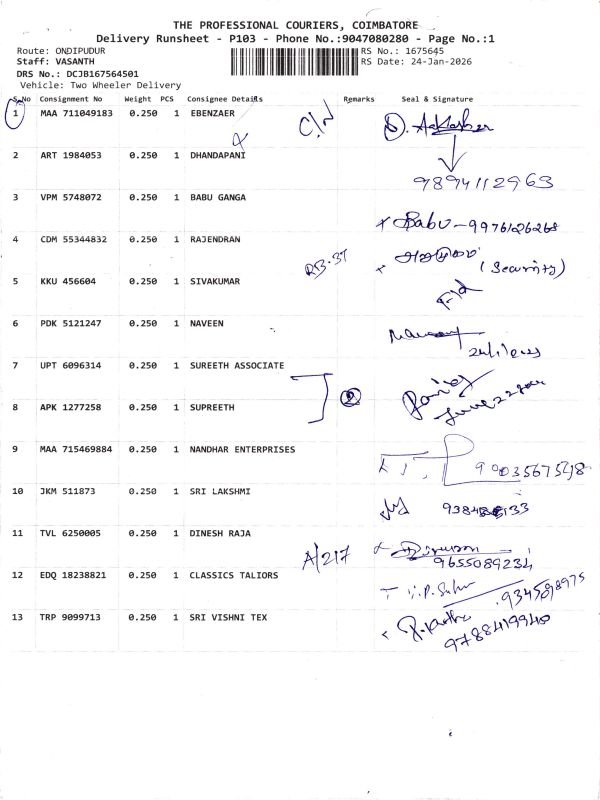 THE PROFESSIONAL COURIERS, COIMBATORE
Delivery Runsheet - P103 - Phone No.:9047080280 - Page No.:1
Route: ONDIPUDUR
RS No.: 1675645
Staff: VASANTH
RS Date: 24-Jan-2026
DRS No.: DCJB167564501
Vehicle: Two Wheeler Delivery
S.No Consignment No Weight PCS Consignee Details Remarks Seal & Signature
1 MAA 711049183 0.250 1 EBENZAER C/N
2 ART 1984053 0.250 1 DHANDAPANI 9894112963
3 VPM 5748072 0.250 1 BABU GANGA x Babu - 9976126268
4 CDM 55344832 0.250 1 RAJENDRAN (Security)
5 KKU 456604 0.250 1 SIVAKUMAR
6 PDK 5121247 0.250 1 NAVEEN
7 UPT 6096314 0.250 1 SUREETH ASSOCIATE
8 APK 1277258 0.250 1 SUPREETH
9 MAA 715469884 0.250 1 NANDHAR ENTERPRISES
10 JKM 511873 0.250 1 SRI LAKSHMI
11 TVL 6250005 0.250 1 DINESH RAJA A/217 9655089234
12 EDQ 18238821 0.250 1 CLASSICS TALIORS
13 TRP 9099713 0.250 1 SRI VISHNI TEX 9788419940